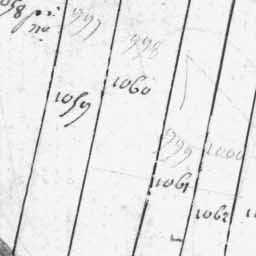 1058 pr:
no.
997
998
1060
1059
999 1000
1061
1062